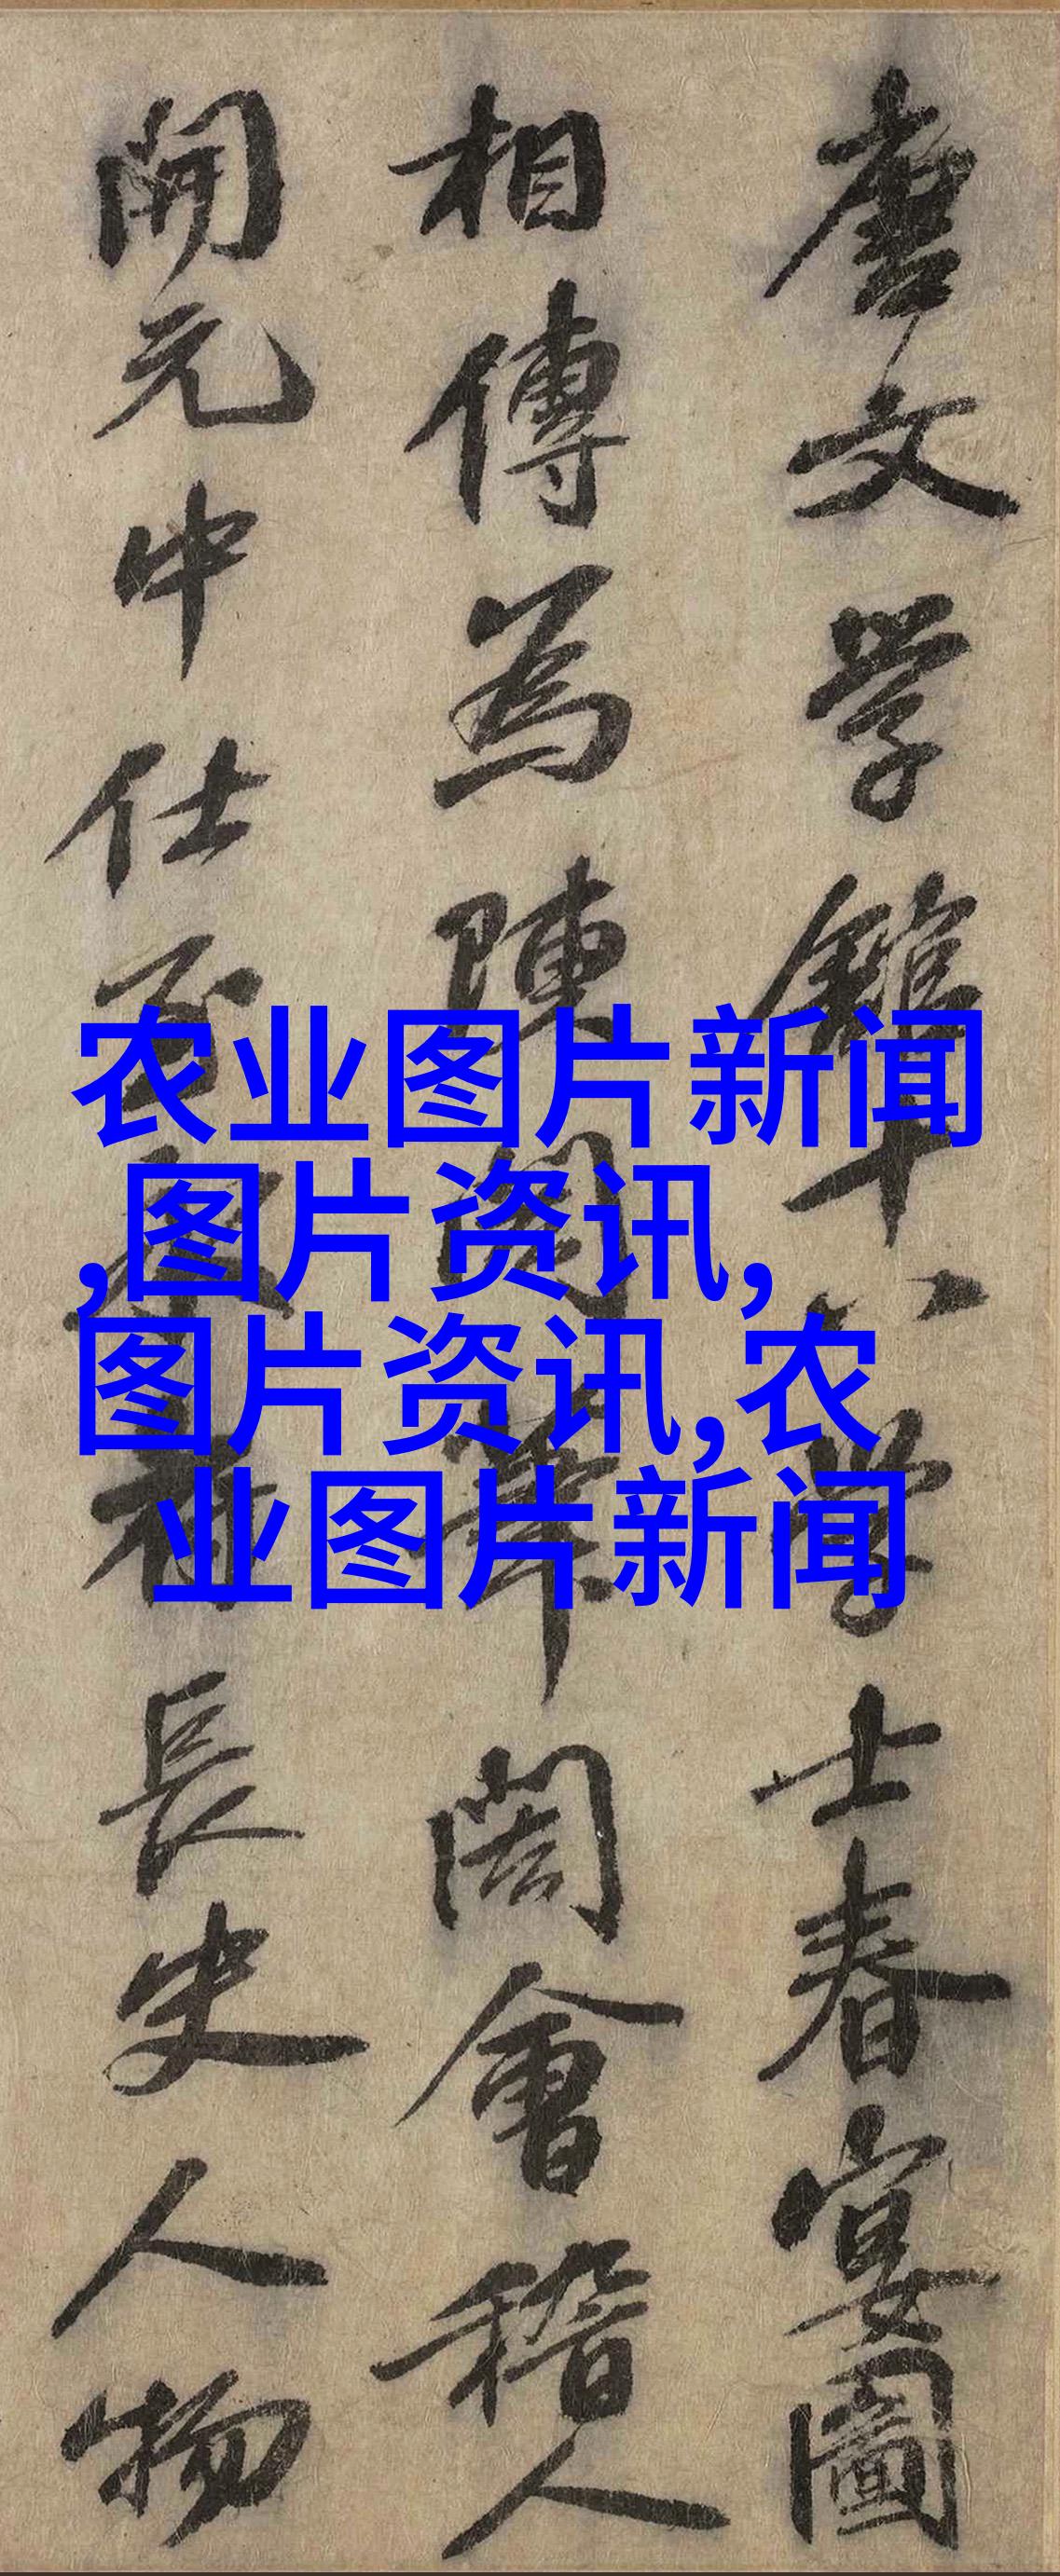 唐文学館十八学士春宴圖
相傳為陳閎筆閎會稽人
開元中仕至府長史人物
农业图片新闻
,图片资讯,
图片资讯,农
业图片新闻